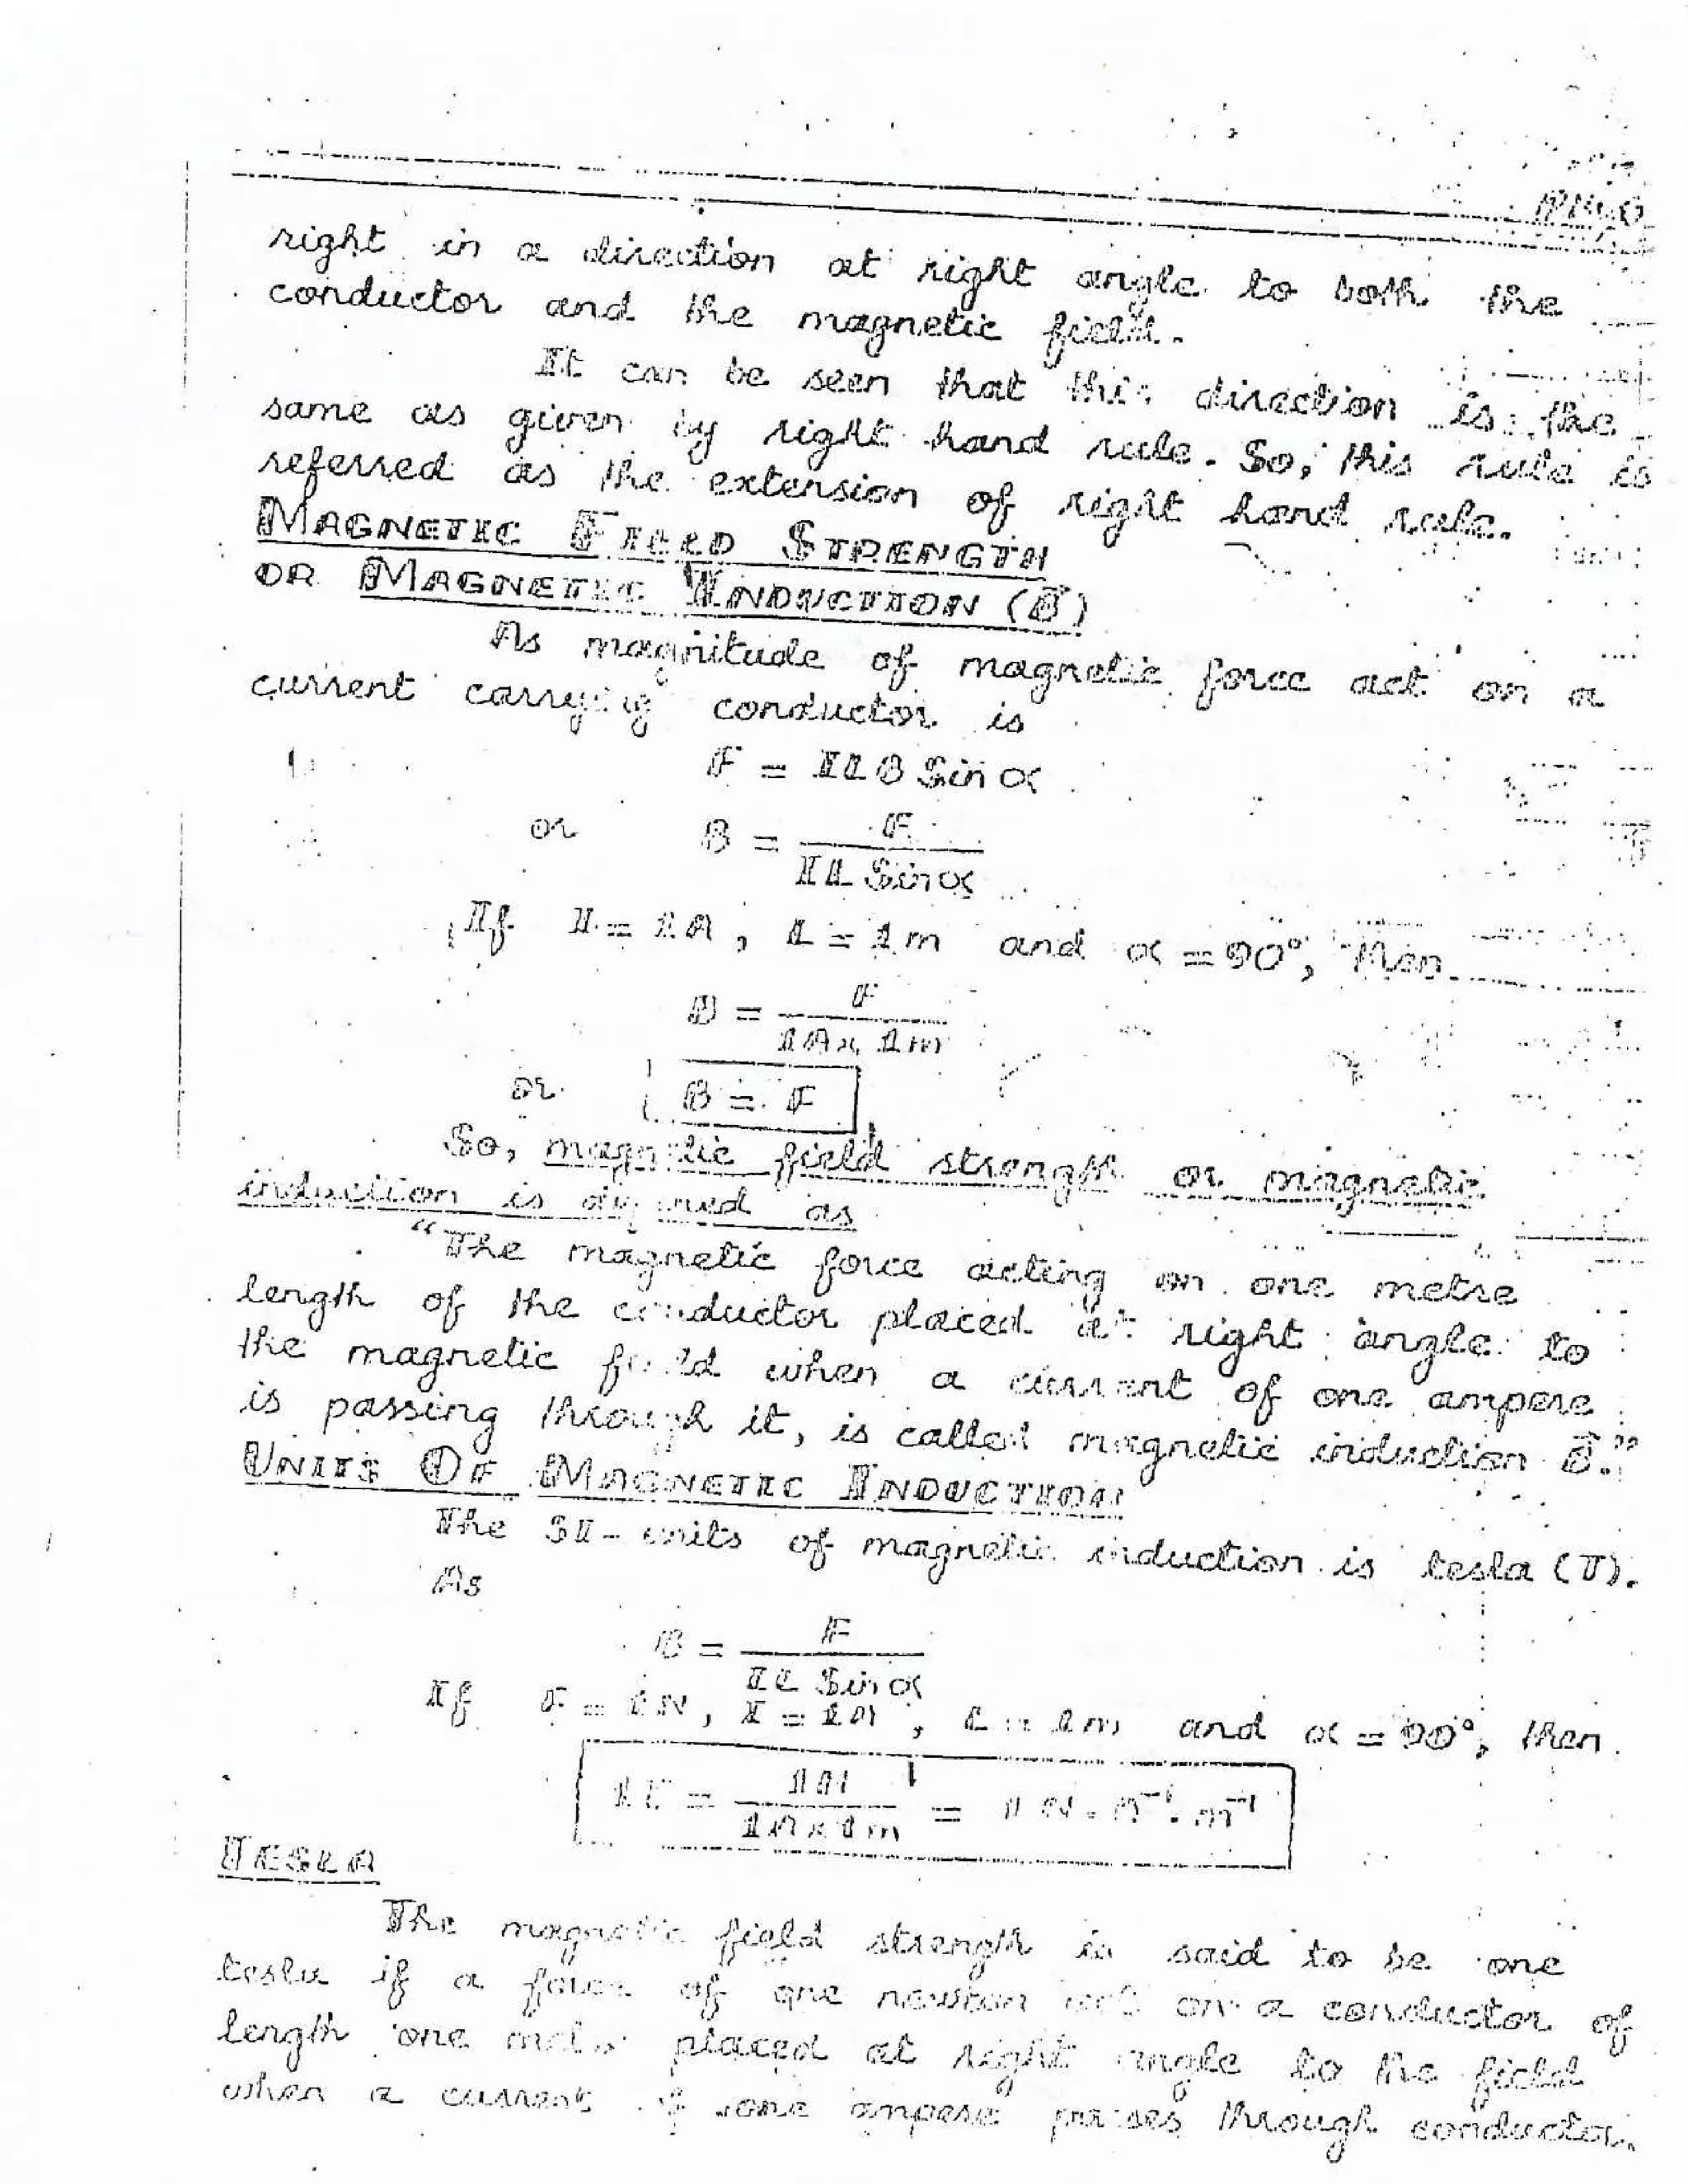 right in a direction at right angle to both the
conductor and the magnetic field.
It can be seen that this direction is the
same as given by right hand rule. So, this rule is
referred as the extension of right hand rule.
MAGNETIC FIELD STRENGTH
OR MAGNETIC INDUCTION (B⃗)
As magnitude of magnetic force act on a
current carrying conductor is
F = ILB Sin α
or B = F / IL Sin α
If I = 1A, L = 1m and α = 90°, then
B = F / 1A x 1m
or B = F
So, magnetic field strength or magnetic
induction is defined as
“The magnetic force acting on one metre
length of the conductor placed at right angle to
the magnetic field when a current of one ampere
is passing through it, is called magnetic induction B⃗.”
UNITS OF MAGNETIC INDUCTION
The SI-units of magnetic induction is tesla (T).
As
B = F / IL Sin α
If F = 1N, I = 1A, L = 1m and α = 90°, then
1T = 1N / 1A x 1m = 1 N·A⁻¹·m⁻¹
TESLA
The magnetic field strength is said to be one
tesla if a force of one newton act on a conductor of
length one metre placed at right angle to the field
when a current of one ampere passes through conductor.